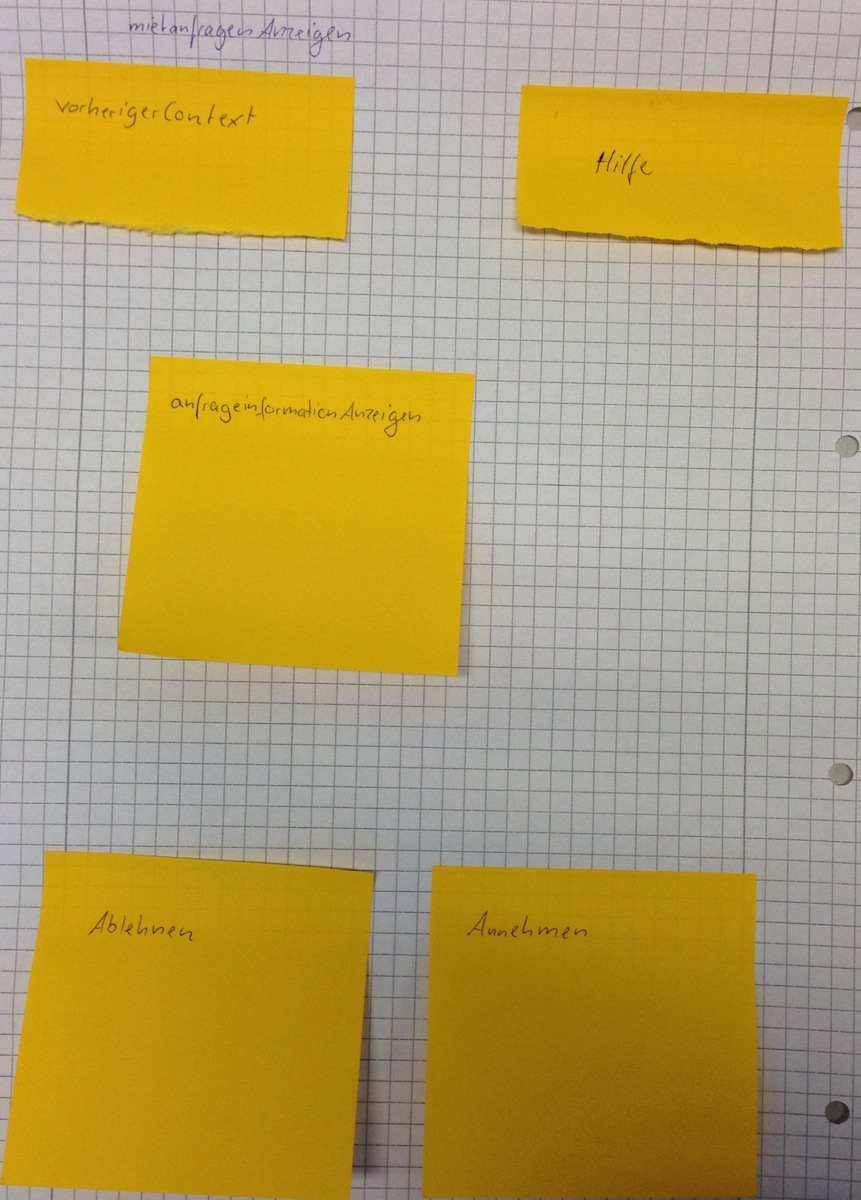 mietanfragenAnzeigen
vorherigerContext
Hilfe
anfrageinformationAnzeigen
Ablehnen
Annehmen